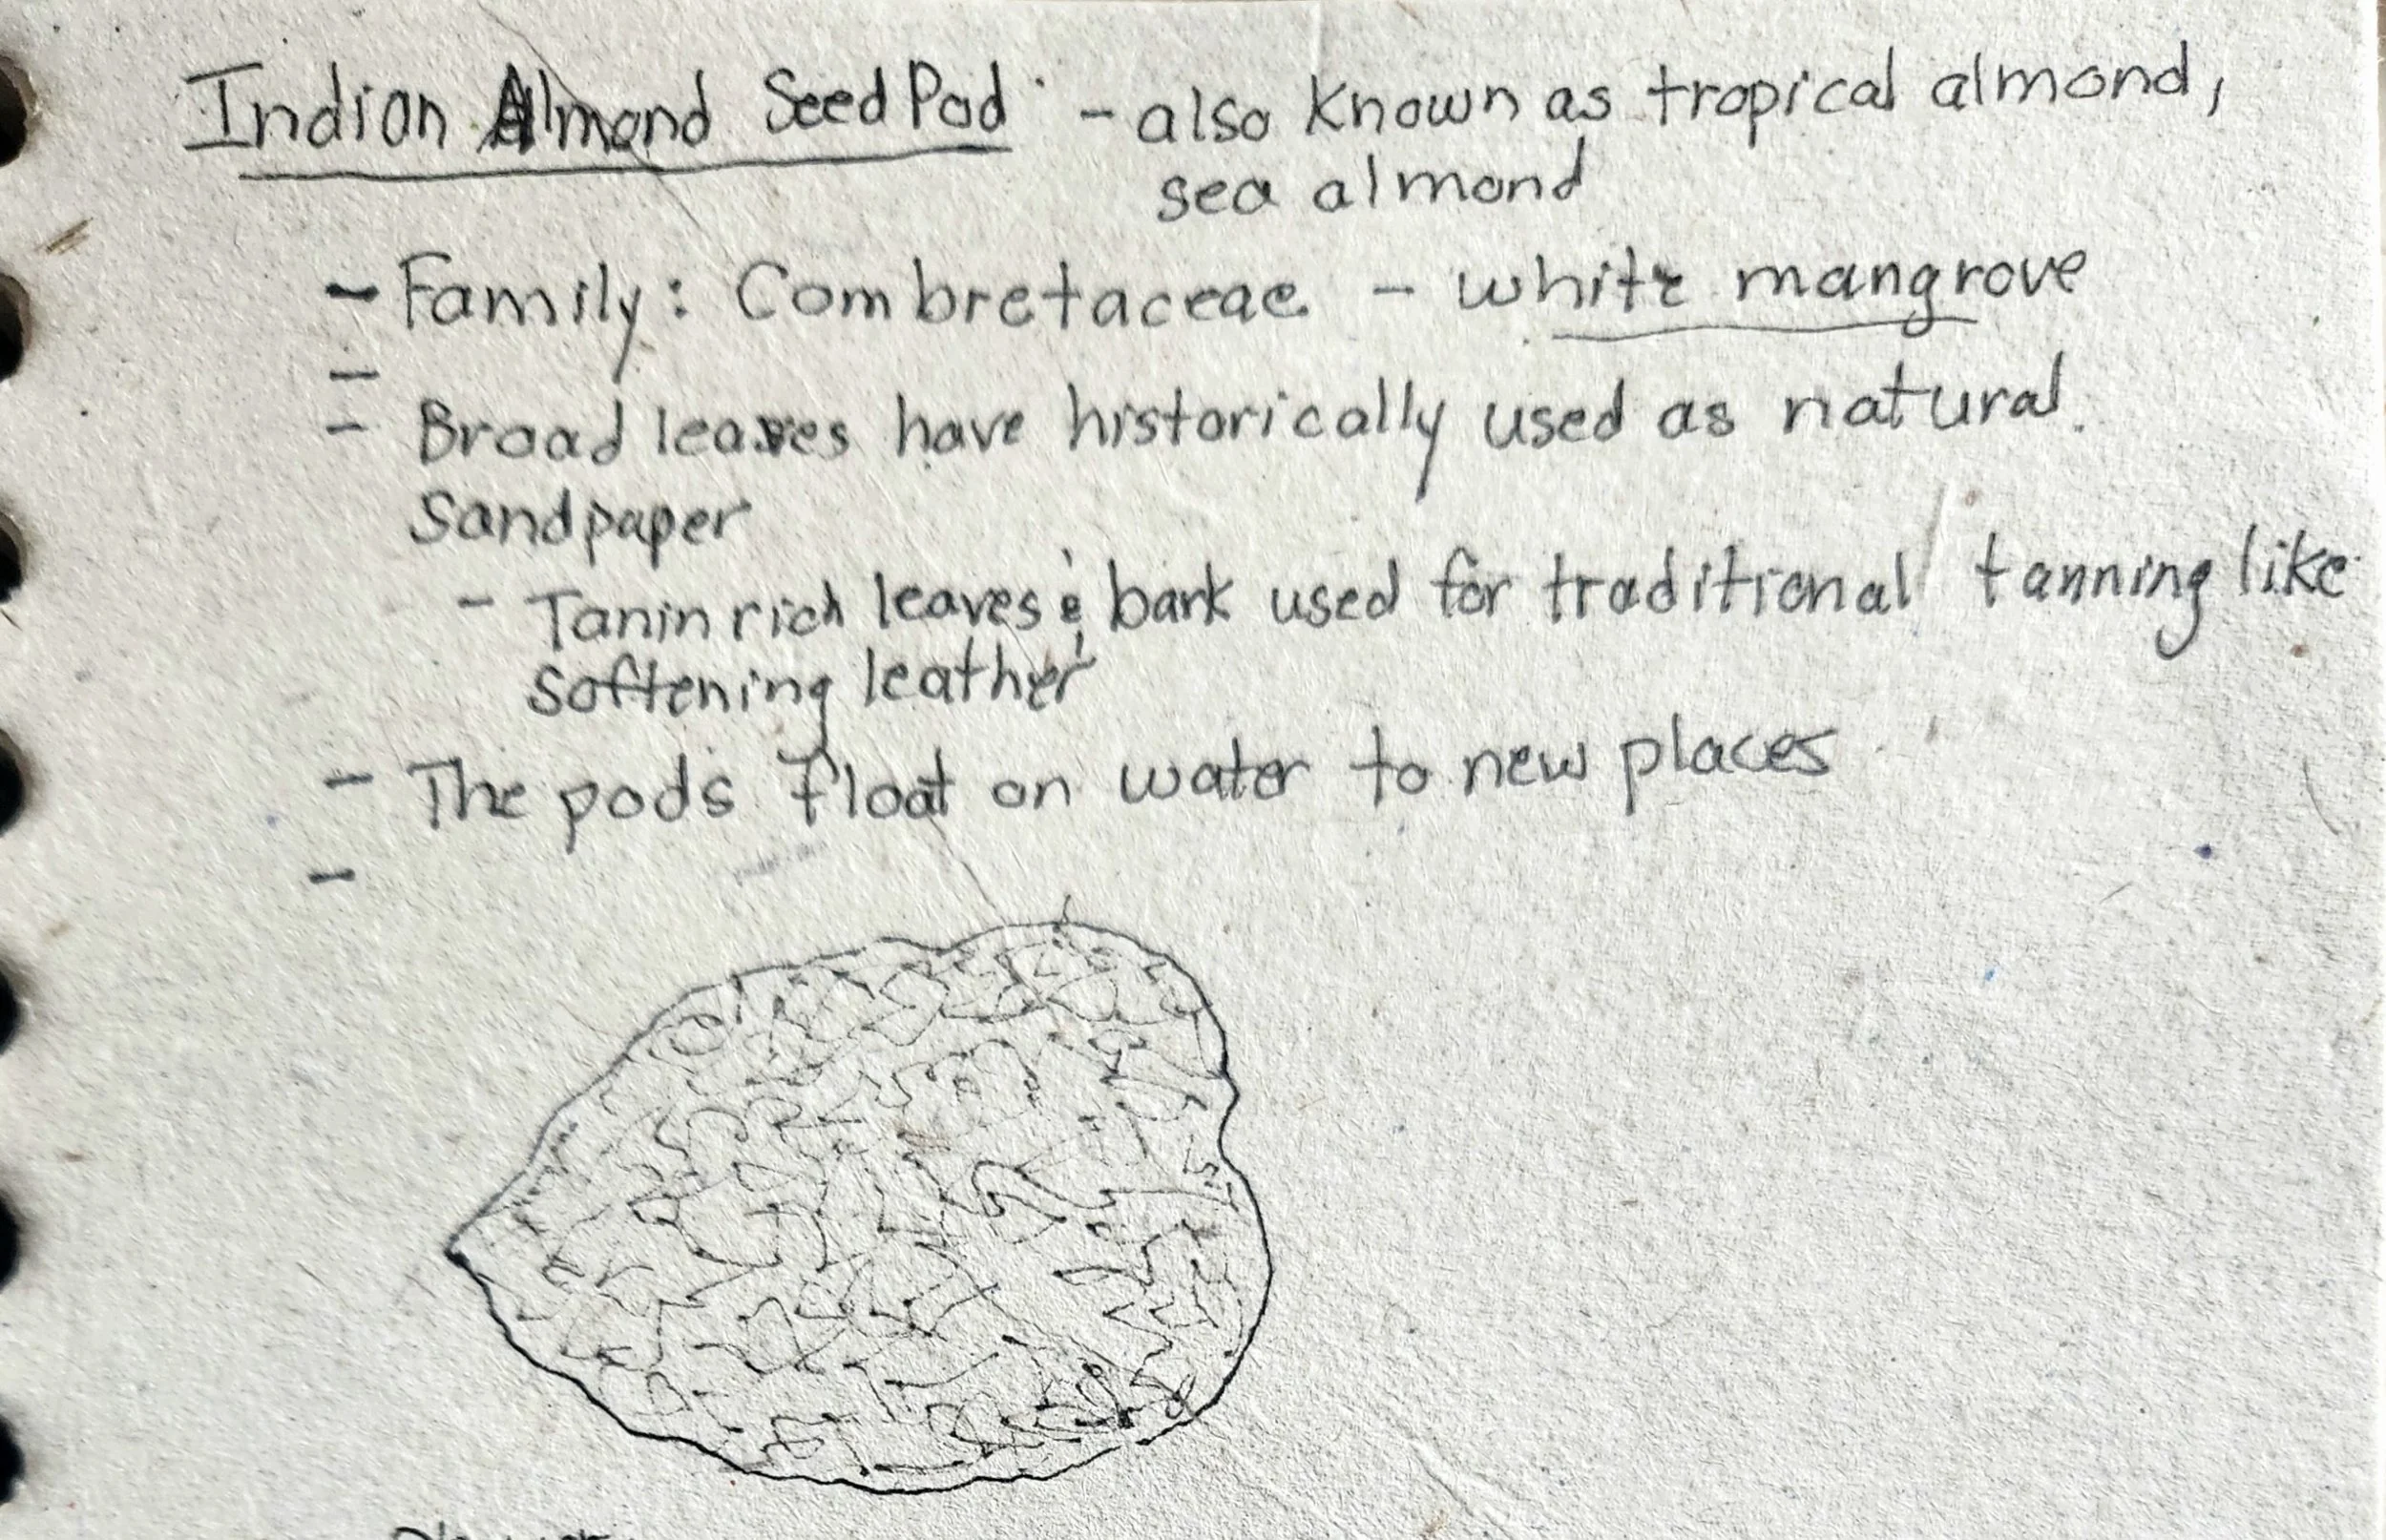 Indian Almond Seed Pod - also known as tropical almond,
sea almond
- Family: Combretaceae - white mangrove
-
- Broad leaves have historically used as natural.
Sandpaper
- Tanin rich leaves & bark used for traditional tanning like
softening leather
- The pods float on water to new places
-